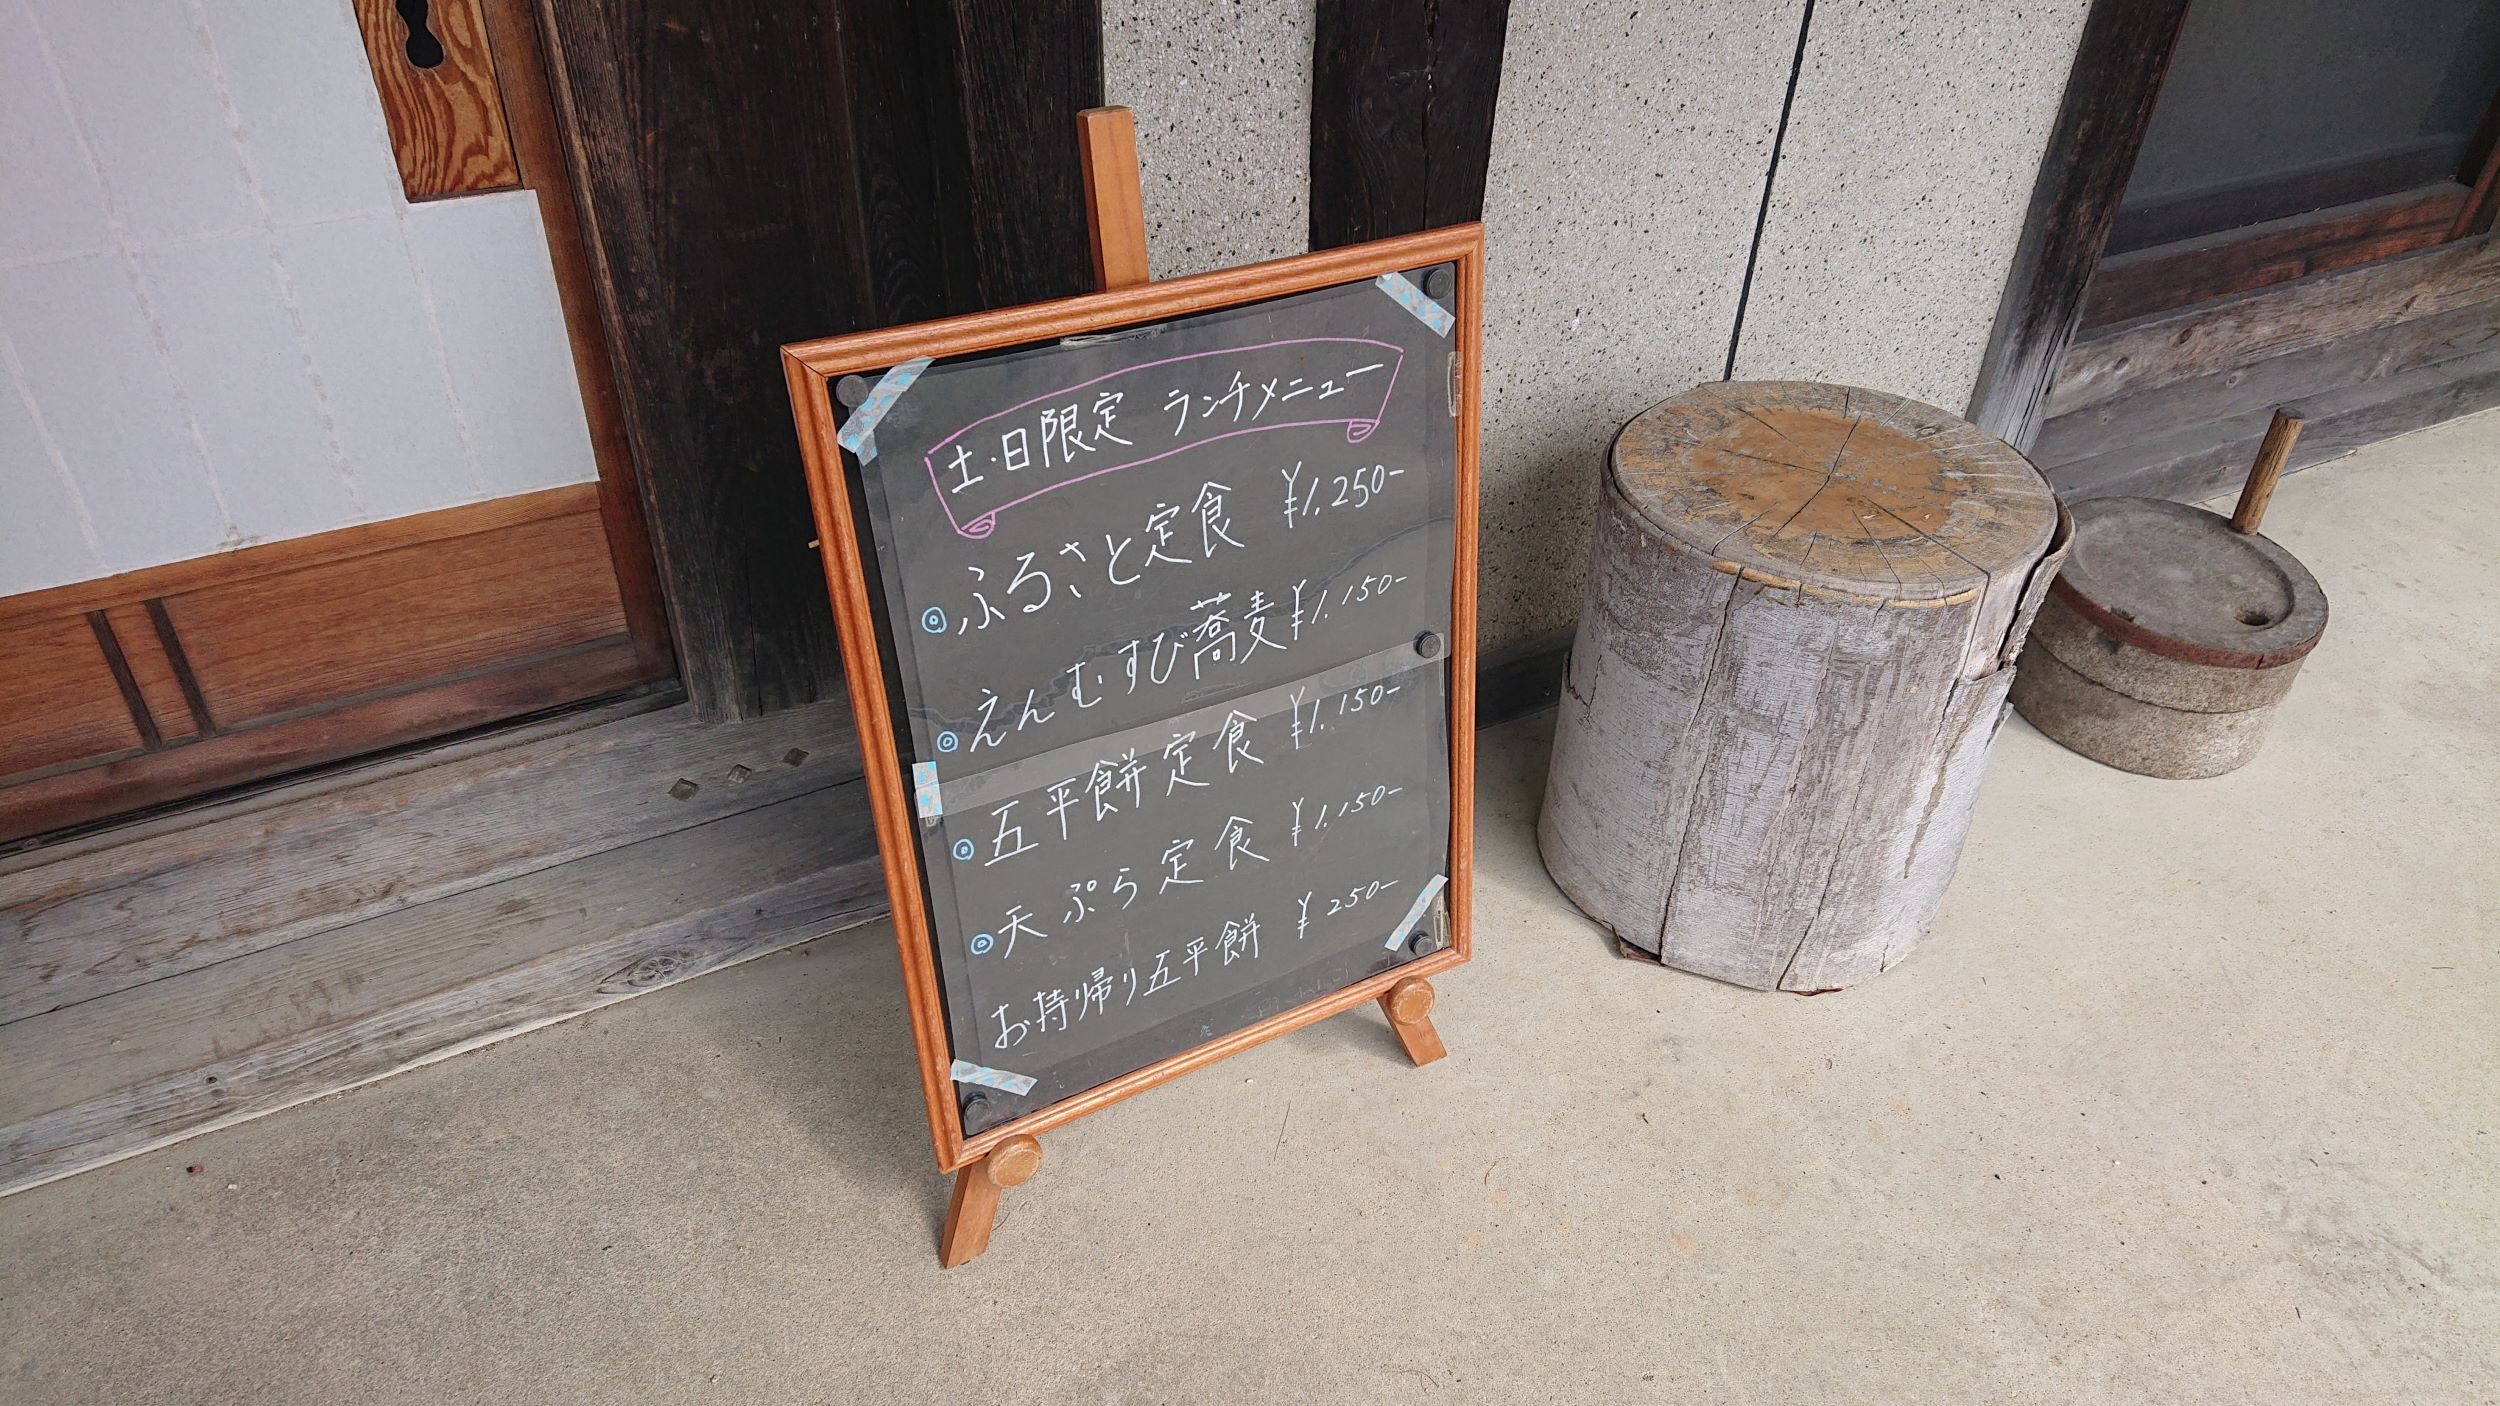 土・日限定 ランチメニュー
◎ふるさと定食 ¥1,250-
◎えんむすび蕎麦 ¥1,150-
◎五平餅定食 ¥1,150-
◎天ぷら定食 ¥1,150-
お持帰り五平餅 ¥250-